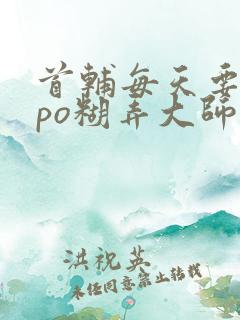 首辅每天要
po糊弄大师
洪祝英
未经同意禁止转载